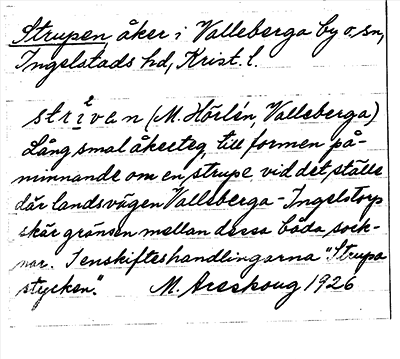 Strupen åker i Valleberga by o. sn,
Ingelstads hd, Krist. l.
(M. Hörlén, Valleberga)
Lång smal åkerteg, till formen på-
minnande om en strupe vid det ställe
där landsvägen Valleberga - Ingelstorp
skär gränsen mellan dessa båda sock-
nar. I enskifteshandlingarna "Strupa
stycken". M. Areskoug 1926